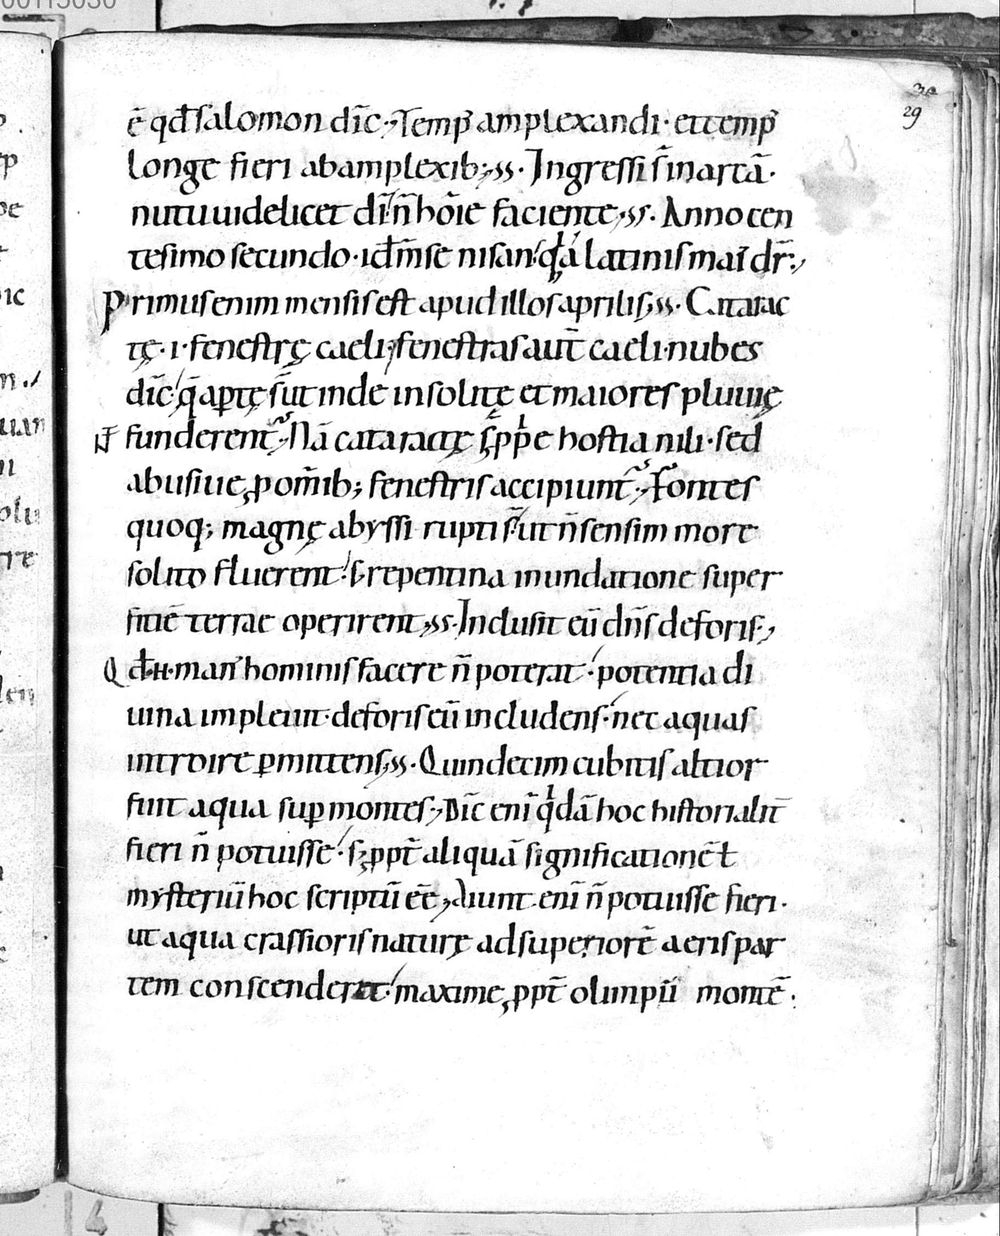 00113030
30
29
ē qđ salomon dīc; Temp̄ amplexandi · et temp̄
longe fieri ab amplexib; ;ss · Ingressi s̄ in arcā ·
nutu uidelicet dī n̄ hōīe faciente ;ss · Anno cen
tesimo secundo · id m̄se nisan qđā latinis maī dr̄;
Primus enim mensis est apud illos aprilis ;ss · Catarac
tę · i · fenestrę caeli; fenestras aut̄ caeli · nubes
dīc q̄ apertę s̄ ut inde insolitę et maiores pluuię
funderent; Nā cataractę p̄p̄e hostia nili · sed
abusiue p om̄ib; fenestris accipiunt; Fontes
quoq; magnę abyssi rupti s̄ ut n̄ sensim more
solito fluerent · s · repentina inundatione super
fitiē terrae operirent ;ss · Inclusit eū dn̄s deforis;
Qđ · man hominis facere n̄ poterat · potentia di
uina impleuit · deforis eū includens · nec aquas
introire pmittens ;ss · Quindecim cubitis altior
fuit aqua sup montes; Dīc enī qđā hoc historialit̄
fieri n̄ potuisse · s; ppt̄ aliquā significationē ł
mysteriū hoc scriptū eē; Aiunt enī n̄ potuisse fieri ·
ut aqua crassioris naturę ad superiorē aeris par
tem conscenderet · maxime ppt̄ olimpū montē ·